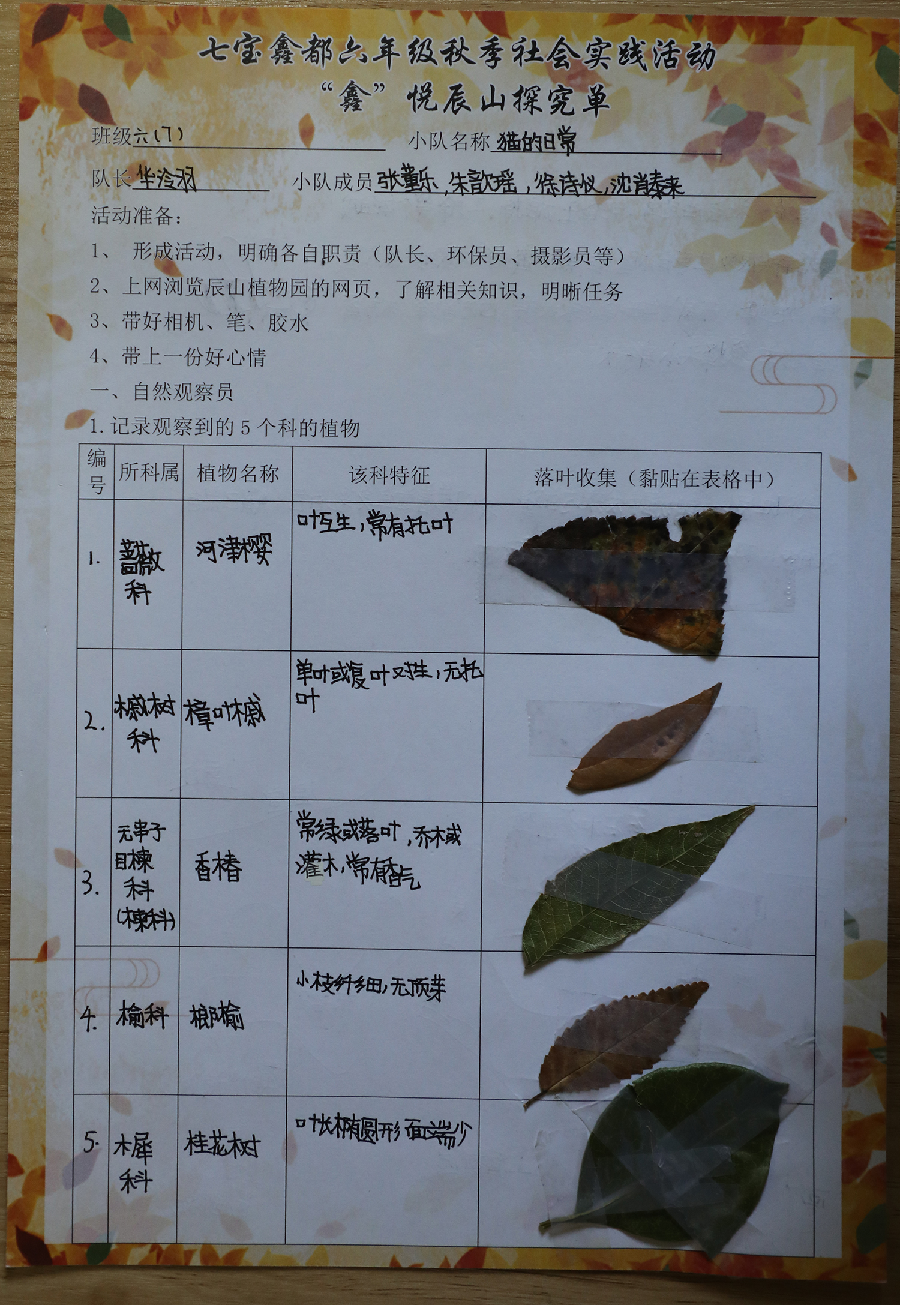 七宝鑫都六年级秋季社会实践活动
“鑫”悦辰山探究单
班级六(7) 小队名称 猫的日常
队长 华泠羽 小队成员 张董乐,朱歆瑶,徐诗仪,沈肖溱来
活动准备:
1、 形成活动,明确各自职责(队长、环保员、摄影员等)
2、上网浏览辰山植物园的网页,了解相关知识,明晰任务
3、带好相机、笔、胶水
4、带上一份好心情
一、自然观察员
1.记录观察到的5个科的植物
编号 所科属 植物名称 该科特征 落叶收集(黏贴在表格中)
1. 蔷薇科 河津樱 叶互生,常有托叶
2. 槭树科 樟叶槭 单叶或复叶对生,无托叶
3. 无患子目楝科(楝科) 香椿 常绿或落叶,乔木或灌木,常有香气
4. 榆科 榔榆 小枝纤细,无顶芽
5. 木犀科 桂花树 叶长椭圆形面端少